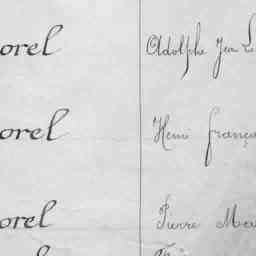 orel Adolphe Jean L
orel Henri franço
orel Pierre Ma